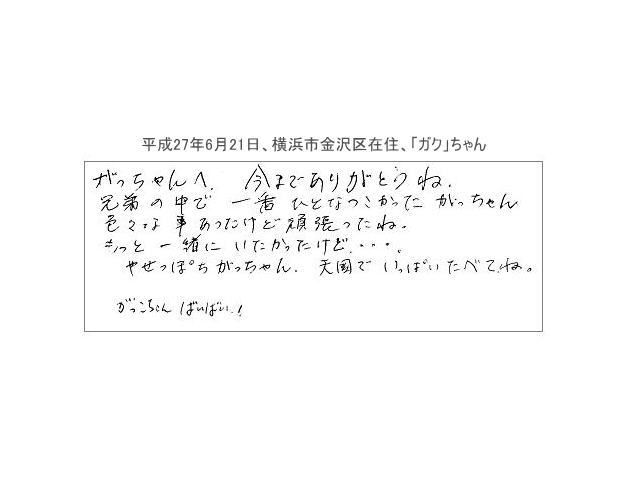 平成27年6月21日、横浜市金沢区在住、「ガク」ちゃん
がっちゃんへ. 今までありがとうね.
兄弟の中で 一番 ひとなつこかった がっちゃん
色々な事あったけど頑張ったね.
もっと一緒にいたかったけど・・・.
やせっぽちがっちゃん. 天国で いっぱいたべてね。
がっこちゃん ばいばい!